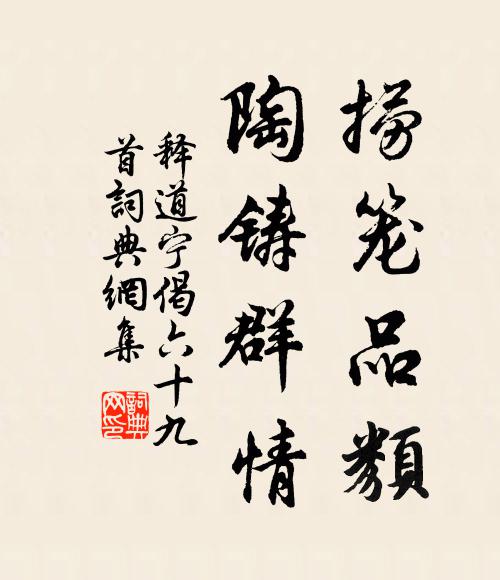 捞笼品類
陶铸群情
释道宁偈六十九
首詞典網集
詞典
网印